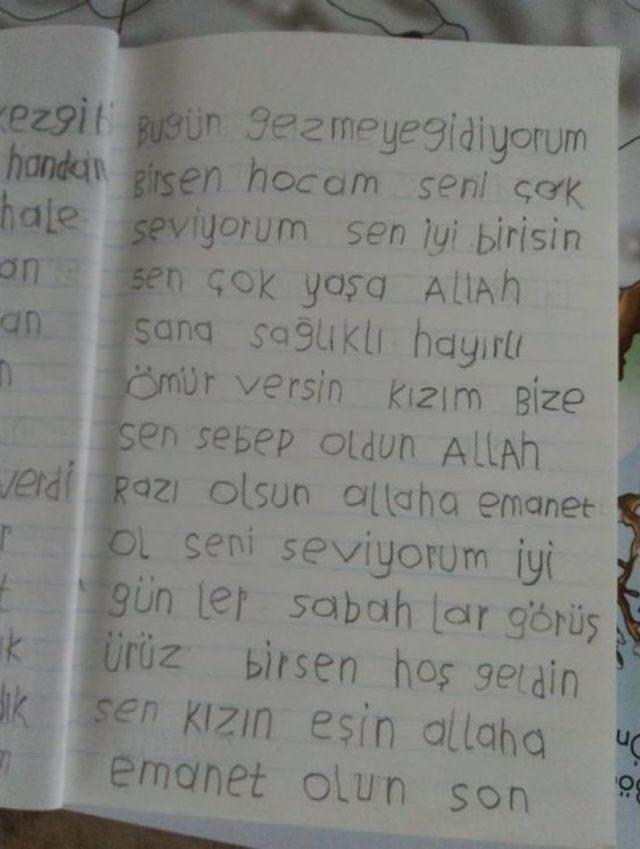 kezgiti
handan
hale
an
an
n
verdi
r
t
ık
dık
n
Bugün gezmeyegidiyorum
Birsen hocam seni çok
seviyorum sen iyi birisin
sen çok yaşa Allah
sana sağlıklı hayırlı
ömür versin kızım Bize
sen sebep oldun Allah
Razı olsun allaha emanet
ol seni seviyorum iyi
gün ler sabah lar görüş
ürüz birsen hoş geldin
sen kızın eşin allaha
emanet olun son